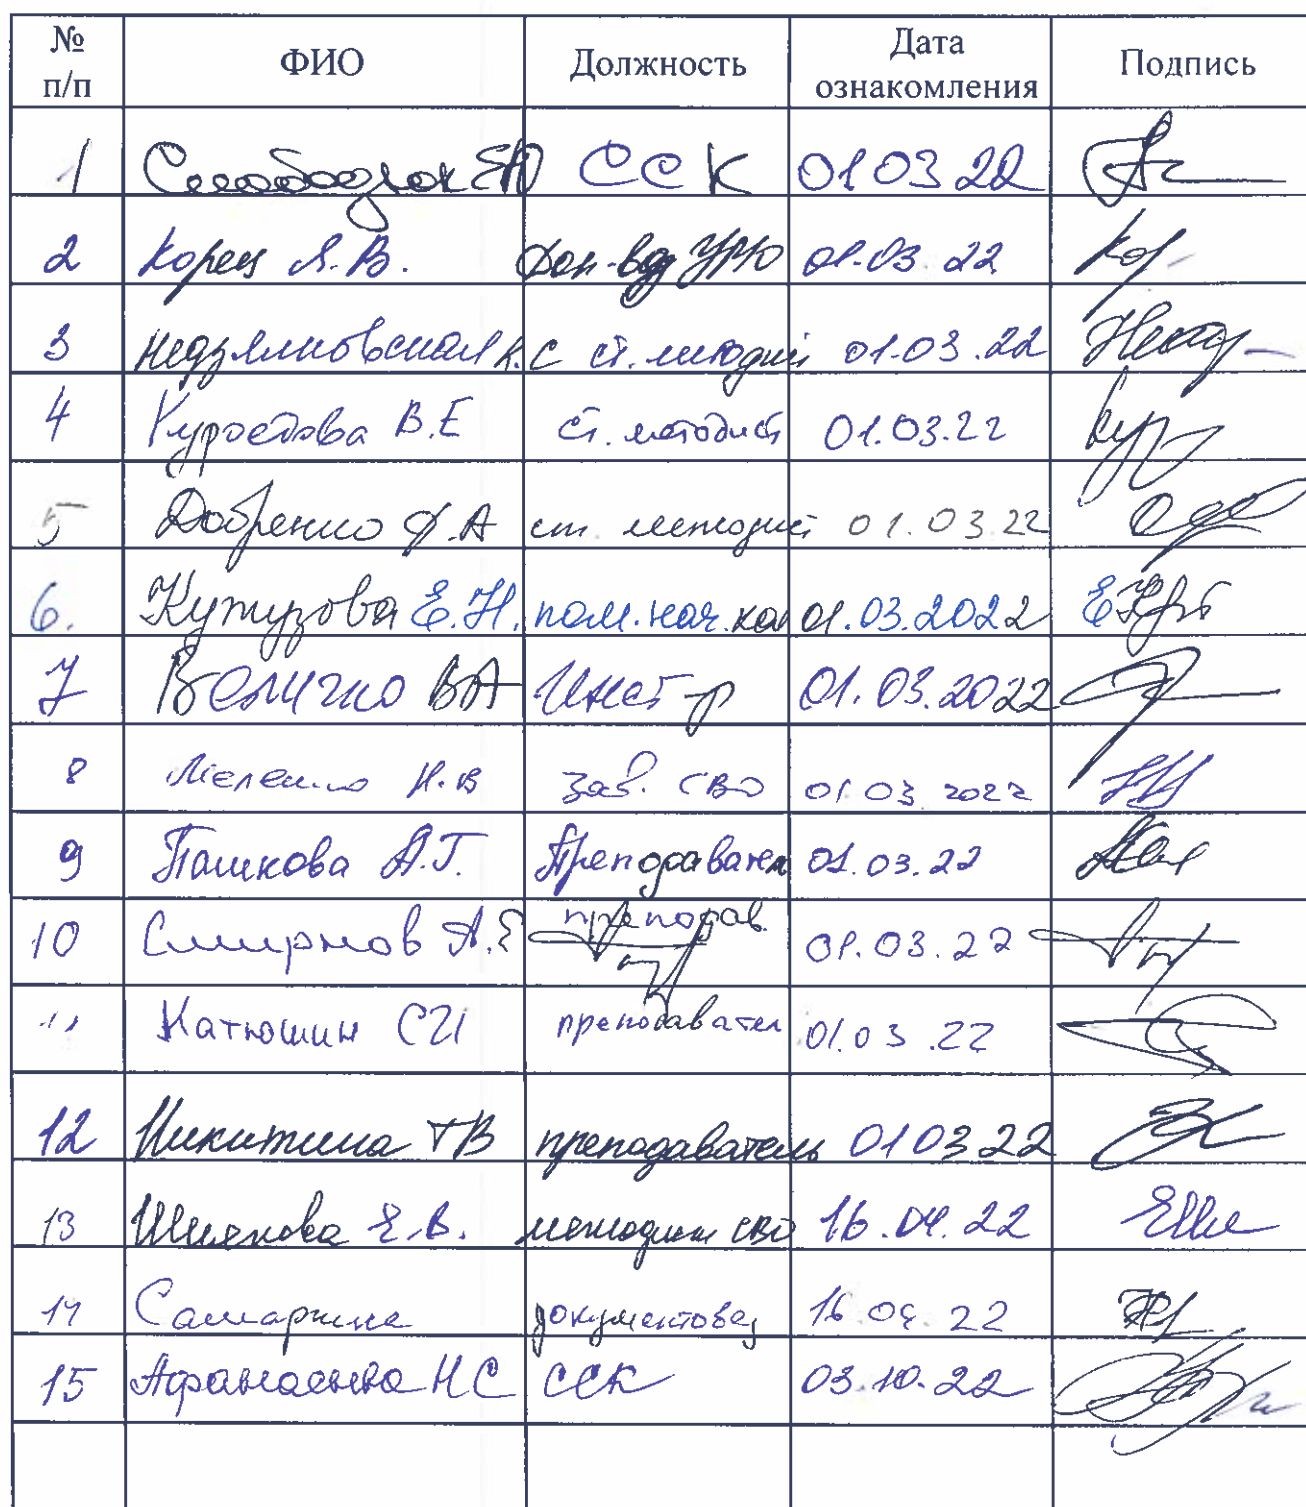 № п/п ФИО Должность Дата ознакомления Подпись
1 Слободзюк ЕЮ ССК 01 03 22
2 Корец Я.В. Док-вед УРЮ 01.03.22
3 К.С ст. методист 01.03.22
4 В.Е ст. методист 01.03.22
5 Добренко Ф.А ст. методист 01.03.22
6. Кутузова Е.Н. пом.нач.кол 01.03.2022
7 Величко ВА Инст-р 01.03.2022
8 Меленко Н.В зав. СВО 01.03 2022
9 Пашкова А.Г. Преподавател 01.03.22
10 Смирнов А.Е преподав. 01.03.22
11 Катюшин СИ преподавател 01.03.22
12 Никитина ТВ преподаватель 01 03 22
13 Е.В. методист СВО 16.04.22
14 документовед 16 04.22
15 НС ССК 03.10.22